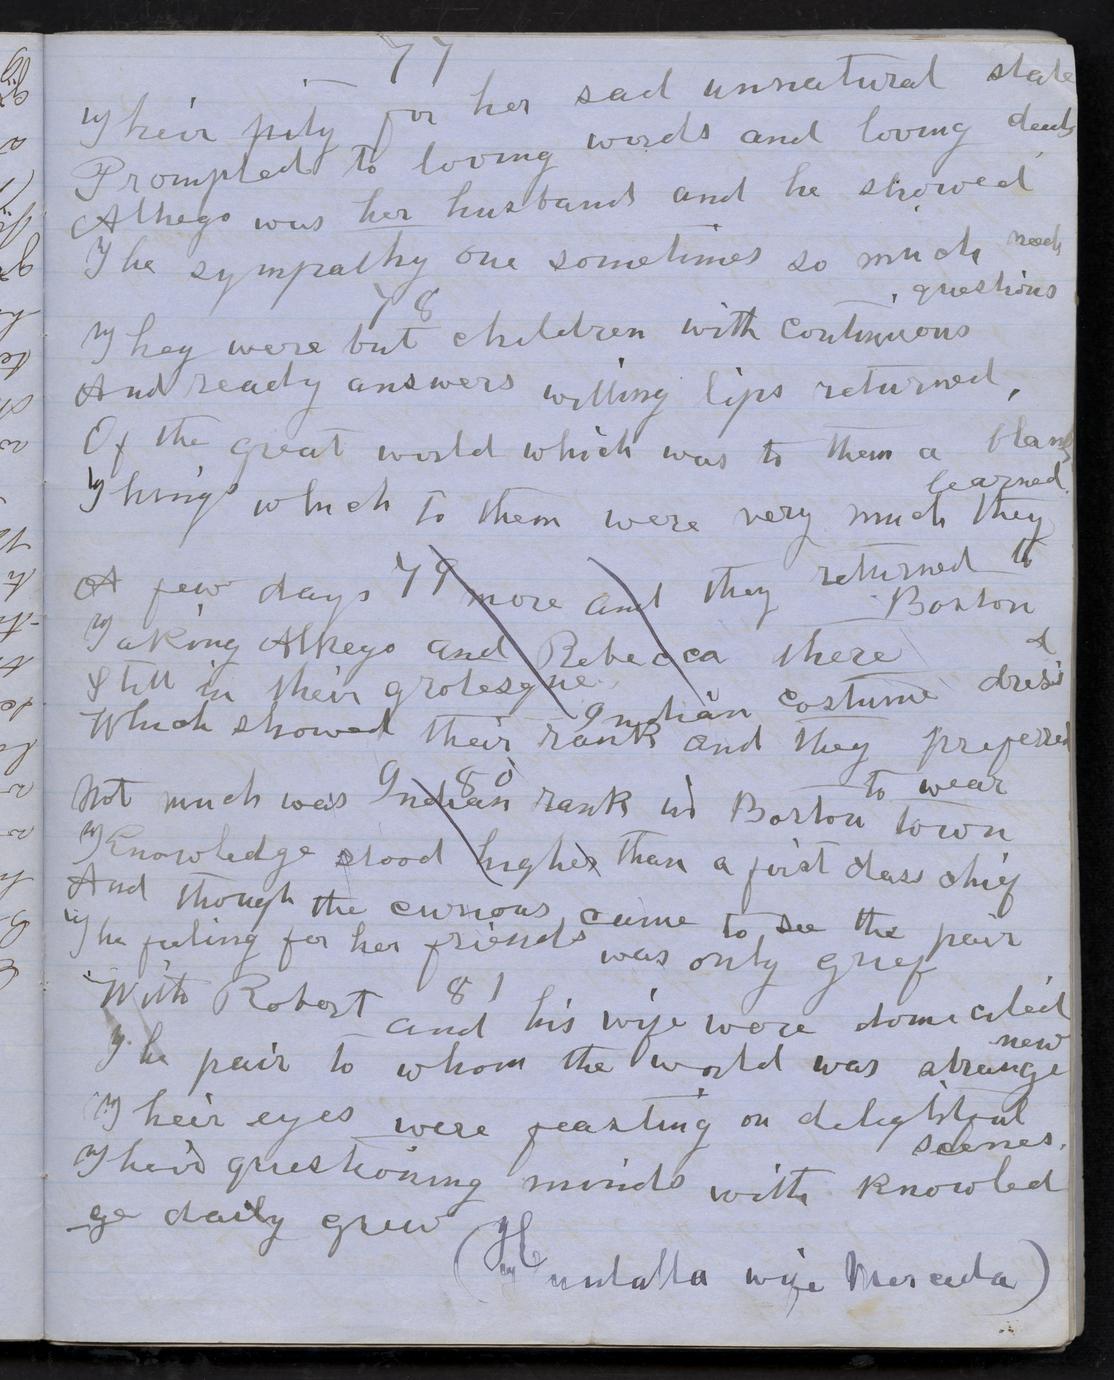 77
Their pity for her sad unnatural state
Prompted to loving words and loving deeds
Alkego was her husband and he showed
The sympathy one sometimes so much needs
78
They were but children with continuous questions
And ready answers willing lips returned,
Of the great world which was to them a blank
Things which to them were very much they learned.
79
A few days more and they returned to Boston
Taking Alkego and Rebecca there
Still in their grotesque Indian costume & dress
Which showed their rank and they preferred to wear
80
Not much was Indian rank in Boston town
Knowledge stood higher than a first class chief
And though the curious came to see the pair
The feeling for her friends was only grief
81
With Robert and his wife were domiciled
The pair to whom the world was strange new
Their eyes were feasting on delightful scenes.
Their questioning minds with knowled
ge daily grew
( wife Mercada)